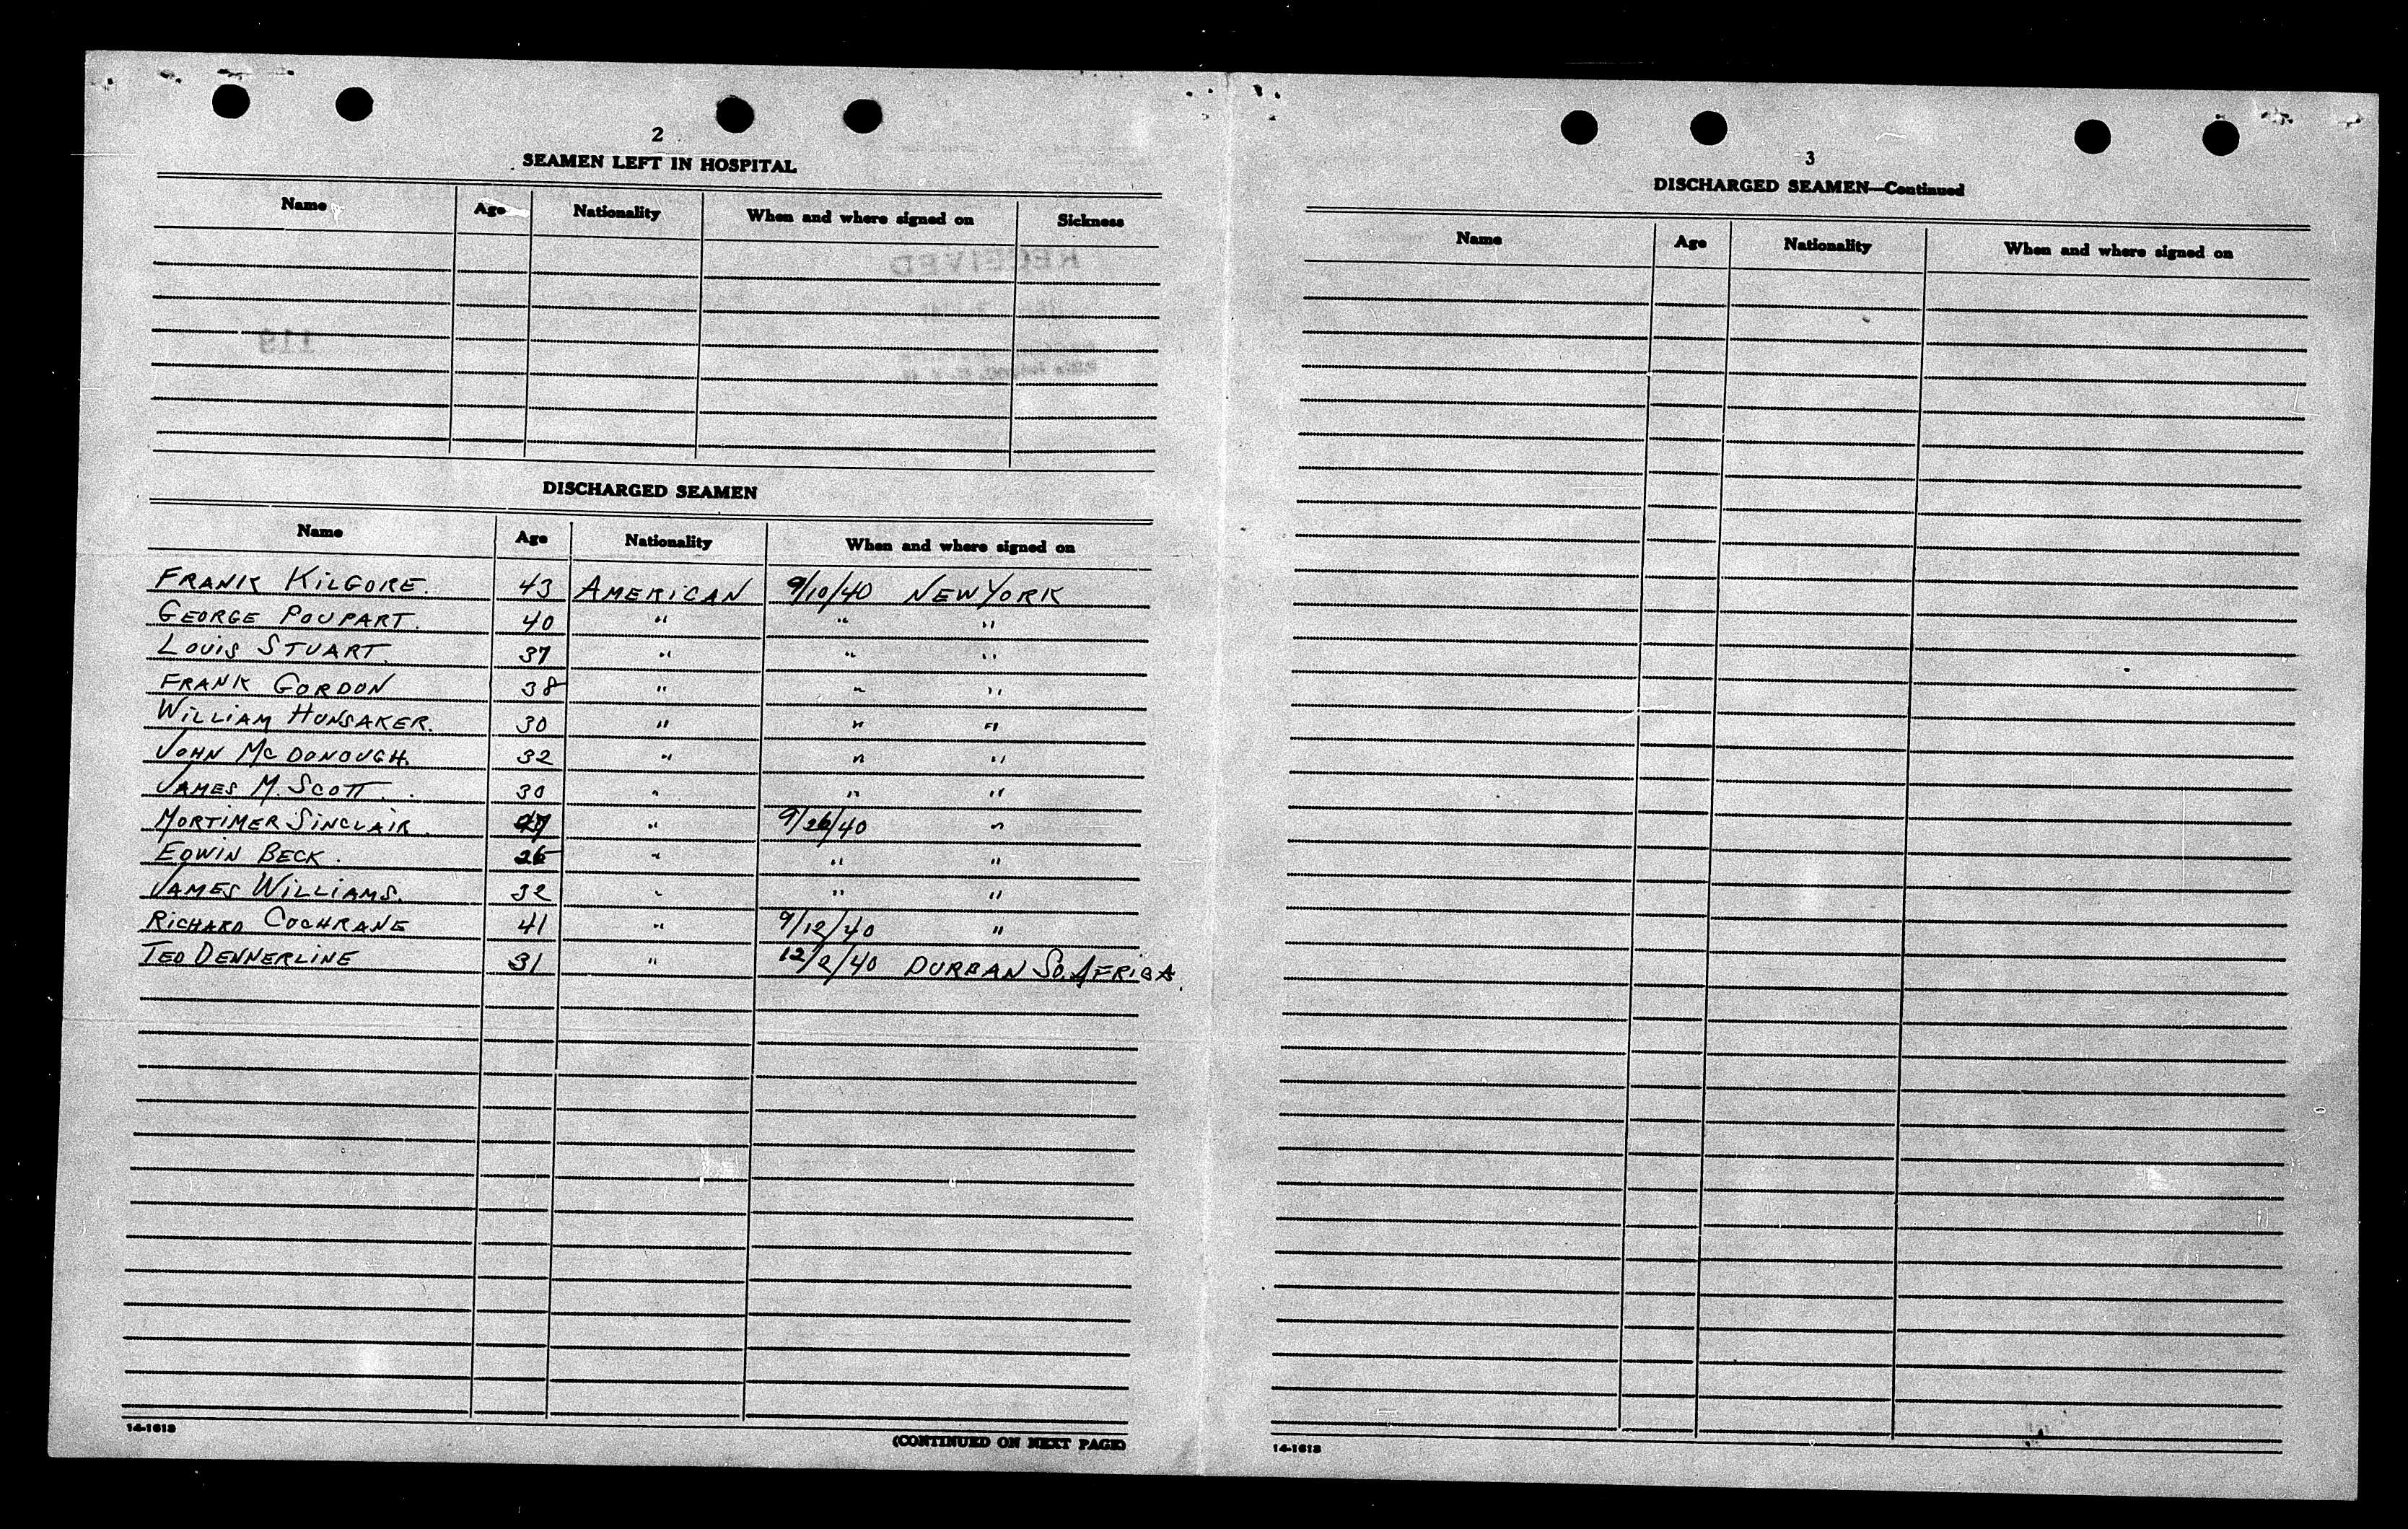 2
SEAMEN LEFT IN HOSPITAL
Name Age Nationality When and where signed on Sickness
RECEIVED
119
DISCHARGED SEAMEN
Name Age Nationality When and where signed on
FRANK KILGORE. 43 AMERICAN 9/10/40 NEW YORK
GEORGE POUPART. 40 " " "
LOUIS STUART. 37 " " "
FRANK GORDON 38 " " "
WILLIAM HUNSAKER. 30 " " "
JOHN MCDONOUGH. 32 " " "
JAMES M. SCOTT. 30 " " "
MORTIMER SINCLAIR. " 9/26/40 "
EDWIN BECK. 26 " " "
JAMES WILLIAMS. 32 " " "
RICHARD COCHRANE 41 " 9/12/40 "
TED DENNERLINE 31 " 12/2/40 DURBAN SO. AFRICA.
14-1613
(CONTINUED ON NEXT PAGE)
3
DISCHARGED SEAMEN—Continued
Name Age Nationality When and where signed on
14-1613